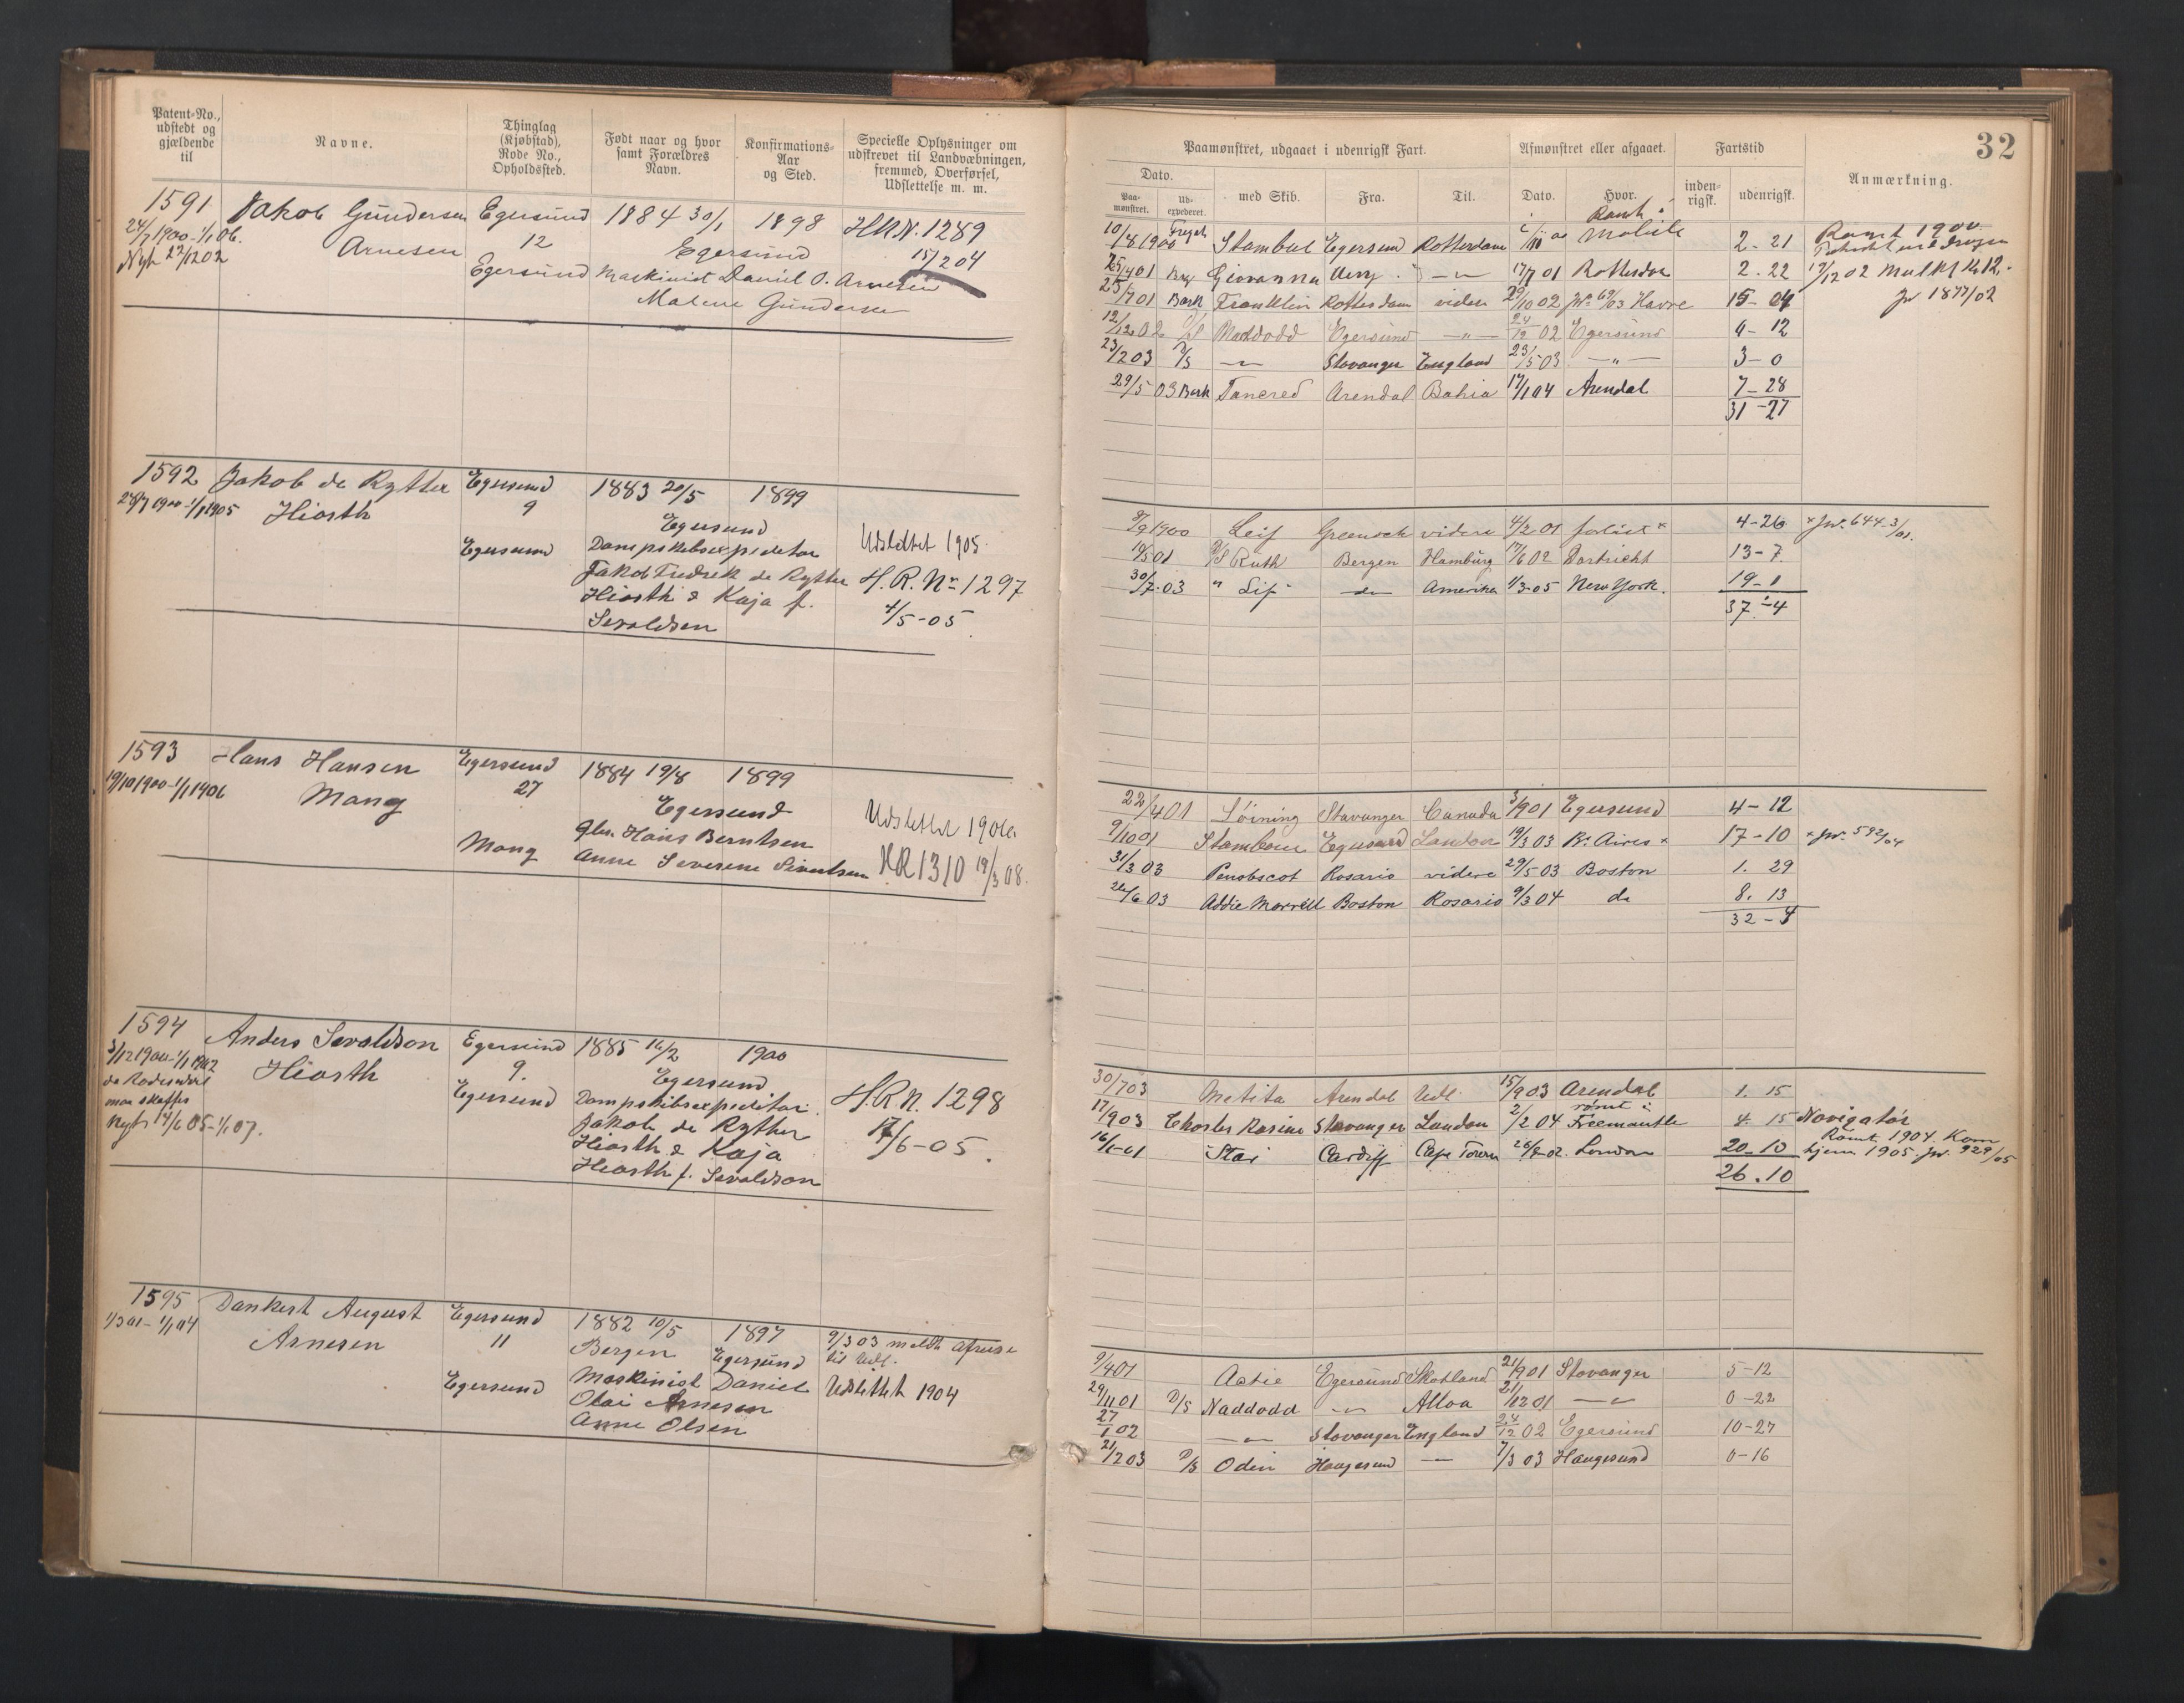 Patent-No., udstedt og gjældende til
Navne.
Thinglag (Kjøbstad), Rode No., Opholdssted.
Født naar og hvor samt Forældres Navn.
Konfirmations-Aar og Sted.
Specielle Oplysninger om udskrevet til Landværnet, fremmed, Overførsel, Udslettelse m. m.
1591 Jakob Gundersen Egersund 1884 30/1 1898 HRN. 1289
24/7 1900-1/1 06. Arnesen 12 Egersund 15/2 04
Nyt 22/12 02 Egersund Maskinist Daniel O. Arnesen
Malene Gundersen
1592 Jakob de Rytter Egersund 1883 20/5 1899
28/7 1900-1/1 1905 Hiorth 9 Egersund
Egersund Dampskibsexpeditør Udslettet 1905.
Jakob Fredrik de Rytter H. R. Nr 1297
Hiorth & Kaja f. 4/5-05
Sevaldsen
1593 Hans Hansen Egersund 1884 19/8 1899
19/10 1900-1/1 1906 Mong 27 Egersund
Hans Berntsen Udslettet 1906.
Mong Anne Severine Sivertsen HR 1310 19/3 08.
1594 Anders Sevaldson Egersund 1885 16/2 1900
3/12 1900-1/1 1907 Hiorth 9. Egersund
Egersund Dampskibsexpeditør H.R.N. 1298
maa skaffes Jakob de Rytter
Nyt 14/6 05-1/1 07. Hiorth & Kaja 17/6-05.
Hiorth f. Sevaldson
1595 Dankert August Egersund 1882 10/5 1897 9/3 03 meldt afreise
1/3 01-1/1 04 Arnesen 11 Bergen Egersund til Udl.
Egersund Maskinist Daniel Udslettet 1904
Olai Arnesen
Anne Olsen
32
Paamønstret, udgaaet i udenrigsk Fart.
Afmønstret eller afgaaet.
Fartstid
Anmærkning.
Dato.
Paa-mønstret.
Ud-expederet.
med Skib.
Fra.
Til.
Dato.
Hvor.
inden-rigsk.
udenrigsk.
Rømt i
10/8 1900 Fregat Stambul Egersund Rotterdam Mobile 2-21 Rømt 1900.
25/4 01 Giovanna -"- 17/7 01 Rotterdam 2.22 19/12 02 Mulkt Kr 12.-
25/7 01 Bark Franklin Rotterdam videre 29/10 02 Havre 15-04 Jr 1877/02
12/12 02 Naddodd Egersund -"- 24/12 02 Egersund 0-12
23/2 03 D/S -"- Stavanger England 23/5 03 -"- 3-0
29/5 03 Bark Tancred Arendal Bahia 17/1 04 Arendal 7-28
31-27
8/9 1900 Leif Greenock videre 4/2-01 4-26 x Jr. 644 3/01.
10/5 01 D/S Ruth Bergen Hamburg 17/6 02 Dortrecht 13-7
30/7-03 " Lif -"- Amerika 1/3-05 New York. 19-1
37-4
22/4 01 Løining Stavanger Canada 3/9 01 Egersund 4-12
9/10 01 Stamboul Egersund London 19/3 03 B. Aires x 17-10 x Jr. 592/04
31/3 03 Penobscot Rosario videre 29/5 03 Boston 1. 29
26/6 03 Addie Morrell Boston Rosario 9/3 04 do 8. 13
32-4
30/7 03 Metita Arendal Udl. 15/9 03 Arendal 1. 15
rømt i
17/9 03 Charles Racine Stavanger London 2/2 04 Fremantle 4. 15 Navigatør
Rømt 1904. Kom
16/1-01 Stai Cardiff Cape Town 26/8-02. London 20.10 hjem 1905. Jr. 929/05
26.10
9/4 01 Actie Egersund Skotland 21/9 01 Stavanger 5-12
29/11 01 D/S Naddodd -"- Alloa 21/12 01 -"- 0-22
27/1 02 -"- Stavanger England 24/12 02 Egersund 10-27
21/2 03 D/S Odin Haugesund -"- 7/3 03 Haugesund 0-16